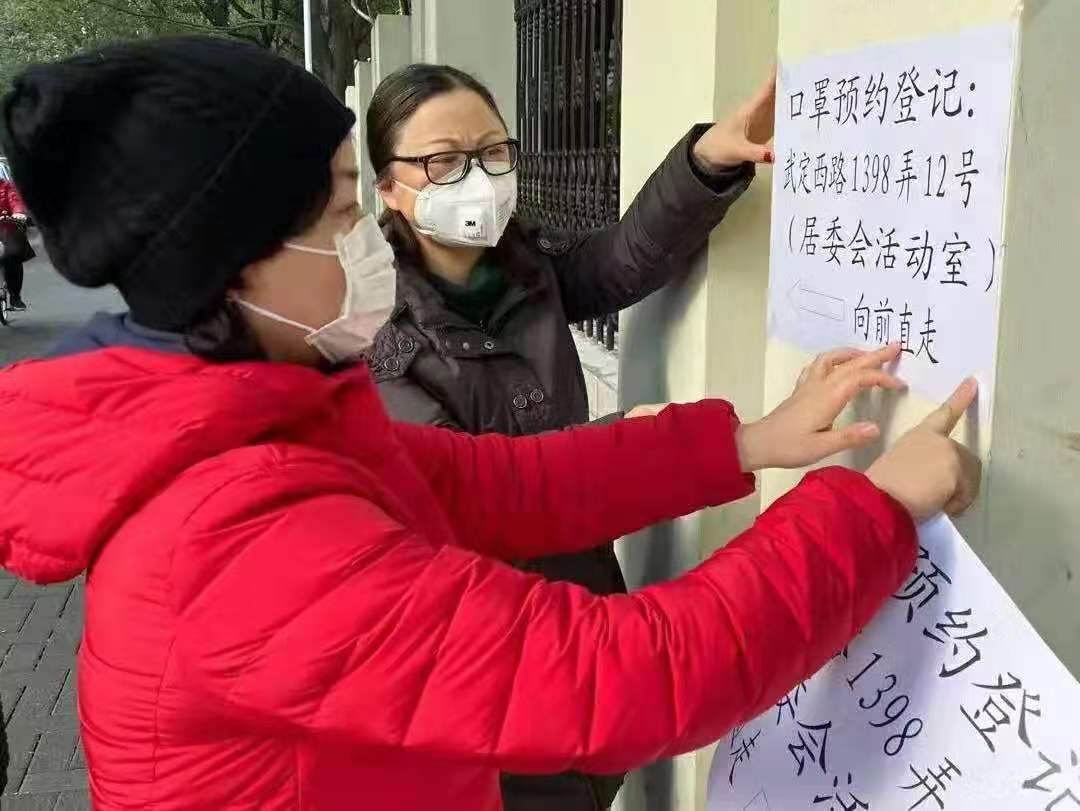 口罩预约登记:
武定西路1398弄12号
(居委会活动室)
向前直走
3M
预约登记
1398弄
委会活